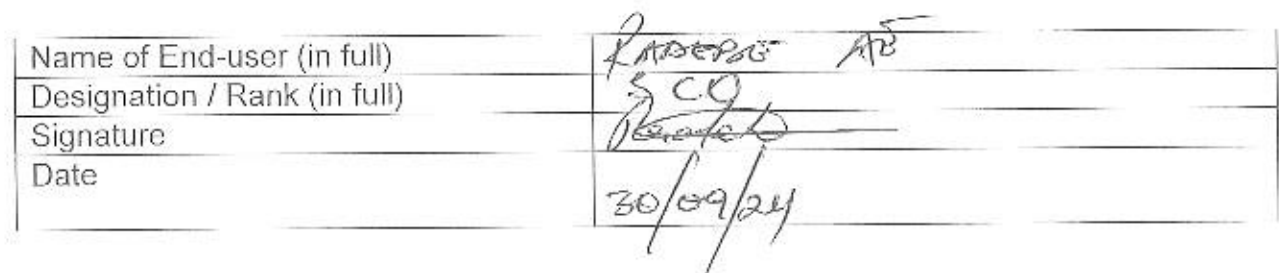 Name of End-user (in full) AE
Designation / Rank (in full) SCO
Signature
Date
30/09/24